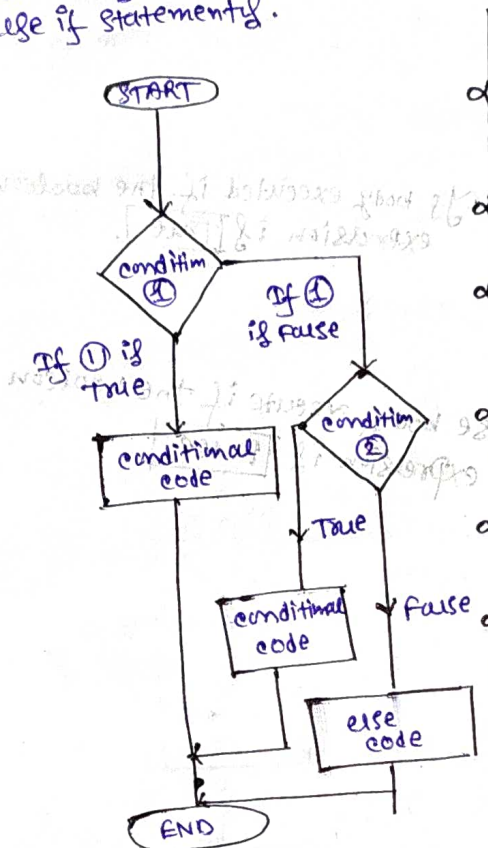 else if statements.
START
condition
①
If ①
is False
If ① is
True
condition
②
conditional
code
True
conditional
code
False
else
code
END